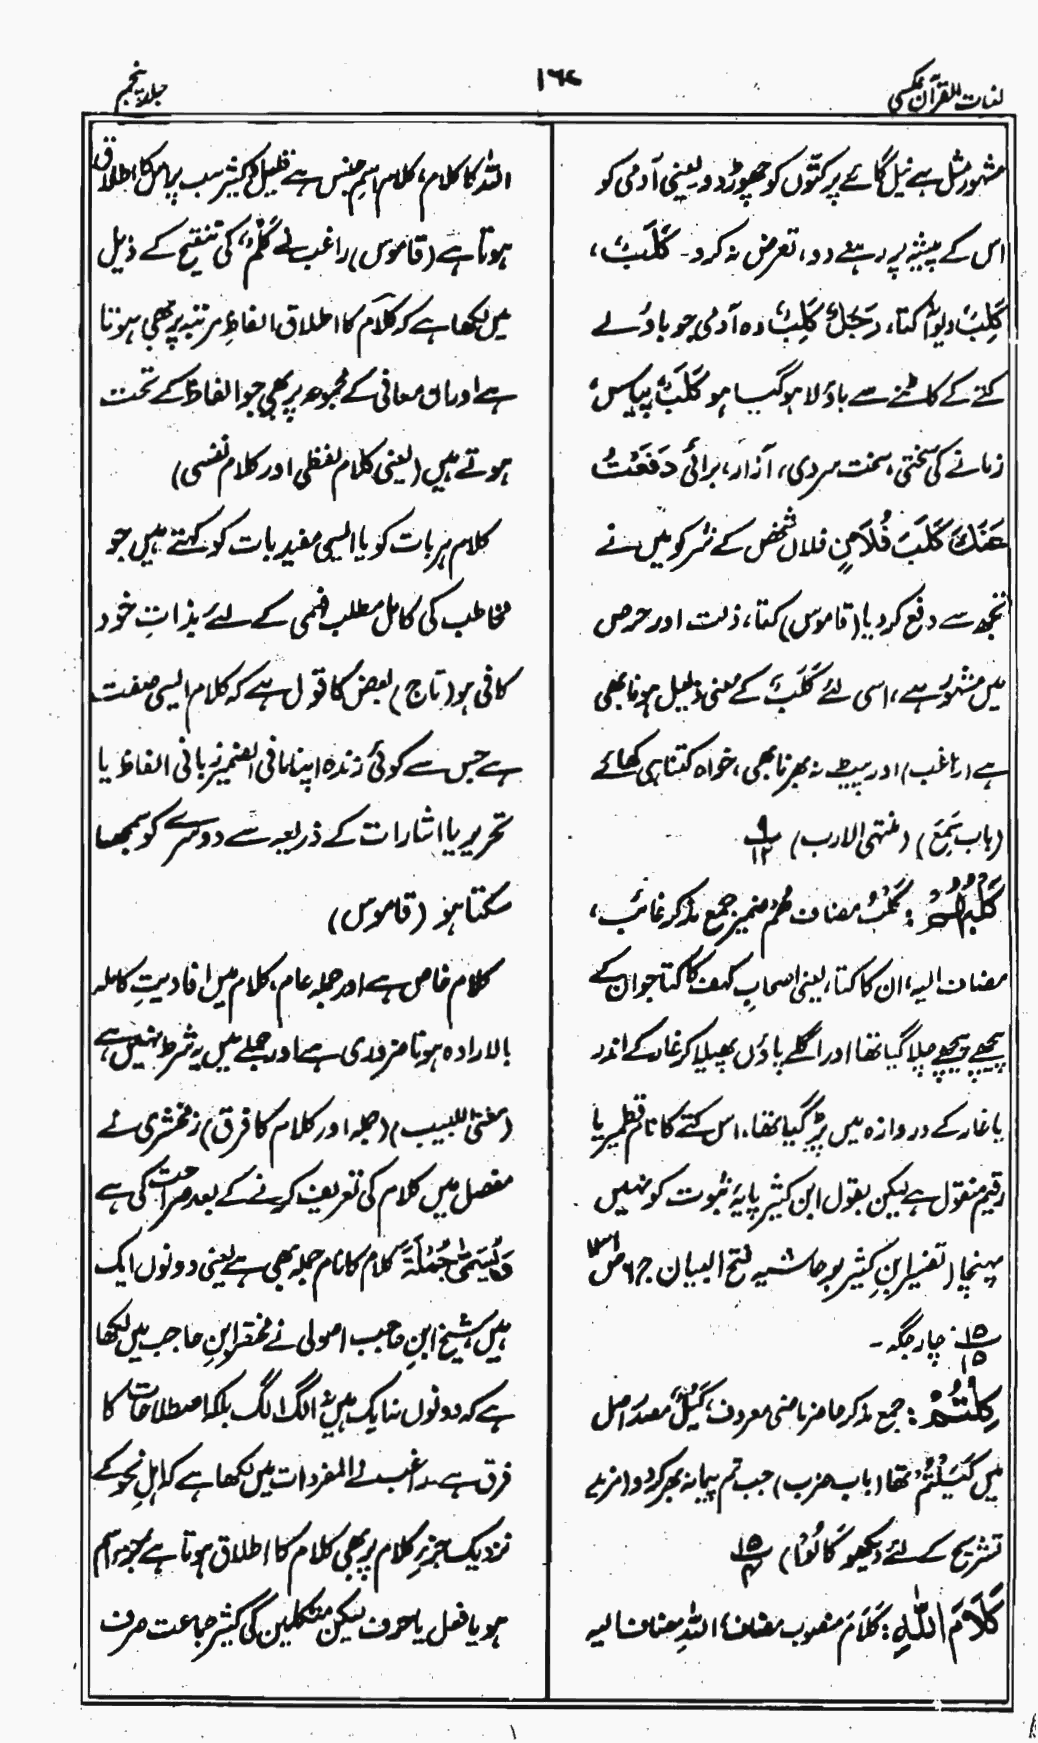 لغات القرآن عکسی
۱۶۷
جلد پنجم
مشہور مثل ہے نیل گائے پر کتّوں کو چھوڑ دو یعنی آدمی کو
اس کے پیشہ پر رہنے دو، تعرض نہ کرو۔ کَلَبٌ،
کَلِبٌ دیوانہ کتا، رَجُلٌ کَلِبٌ وہ آدمی جو باؤلے
کتے کے کاٹنے سے باؤلا ہو گیا ہو کَلَبٌ پیاس،
زمانے کی سختی، سخت سردی، آزار، برائی دَفَعْتُ
عَنْکَ کَلَبَ فُلَانٍ فلاں شخص کے شر کو میں نے
تجھ سے دفع کر دیا (قاموس) کتا، ذلت اور حرص
میں مشہور ہے، اسی لئے کَلَبَ کے معنی ذلیل ہونا بھی
ہے (راغب) اور پیٹ نہ بھرنا بھی، خواہ کتنا ہی کھائے
(باب سَمِعَ) (منتہی الارب) ۹/۱۲
کَلْبُہُمْ: کَلْبُ مضاف ہُمْ ضمیر جمع مذکر غائب،
مضاف الیہ، ان کا کتا، یعنی اصحابِ کہف کا کتا جو ان کے
پیچھے پیچھے چلا گیا تھا اور اگلے پاؤں پھیلا کر غار کے اندر
یا غار کے دروازہ میں پڑ گیا تھا، اس کتے کا نام قطمیر یا
رقیم منقول ہے لیکن بقول ابن کثیر پایۂ ثبوت کو نہیں
پہنچا (تفسیر ابنِ کثیر بر حاشیہ فتح البیان ج ۶ ص
۱۵/۱۵ چار جگہ۔
کِلْتُمْ: جمع مذکر حاضر ماضی معروف، کَیْلٌ مصدر اصل
میں کَیَلْتُمْ تھا (باب ضرب) جب تم پیمانہ بھر کر دو (مزید
تشریح کے لئے دیکھو کَالُوْا) ۱۵/۴
کَلَامَ اللّٰہِ: کَلَامَ منصوب مضاف، اللّٰہِ مضاف الیہ
اللّٰہ کا کلام، کلام اسمِ جنس ہے قلیل و کثیر سب پر اس کا اطلاق
ہوتا ہے (قاموس) راغب نے کَلْمٌ، کی تنقیح کے ذیل
میں لکھا ہے کہ کلام کا اطلاق الفاظِ مرتبہ پر بھی ہوتا
ہے اور ان معانی کے مجموعہ پر بھی جو الفاظ کے تحت
ہوتے ہیں (یعنی کلام لفظی اور کلام نفسی)
کلام ہر بات کو یا ایسی مفید بات کو کہتے ہیں جو
مخاطب کی کامل مطلب فہمی کے لئے بذاتِ خود
کافی ہو (تاج) بعض کا قول ہے کہ کلام ایسی صفت
ہے جس سے کوئی زندہ اپنا مافی الضمیر زبانی الفاظ یا
تحریر یا اشارات کے ذریعہ سے دوسرے کو سمجھا
سکتا ہو (قاموس)
کلام خاص ہے اور جملہ عام، کلام میں افادیتِ کاملہ
بالارادہ ہونا ضروری ہے اور جملے میں یہ شرط نہیں ہے
(مغنی اللبیب) (جملہ اور کلام کا فرق) زمخشری نے
مفصل میں کلام کی تعریف کرنے کے بعد صراحت کی ہے
وَیُسَمّٰی جُمْلَۃً کلام کا نام جملہ بھی ہے یعنی دونوں ایک
ہیں، شیخ ابنِ حاجب اصولی نے مختصر ابنِ حاجب میں لکھا
ہے کہ دونوں نہ ایک ہیں نہ الگ الگ بلکہ اصطلاحات کا
فرق ہے۔ راغب نے المفردات میں لکھا ہے کہ اہلِ نحو کے
نزدیک جزءِ کلام پر بھی کلام کا اطلاق ہوتا ہے جزء اسم
ہو یا فعل یا حرف لیکن متکلمین کی کثیر جماعت صرف